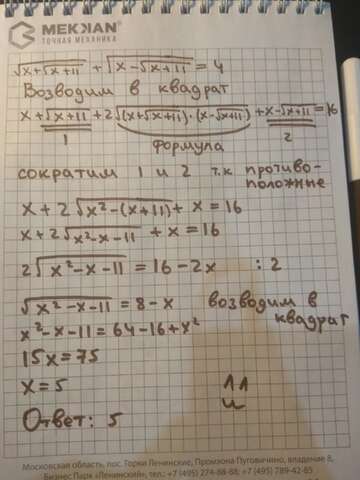 МЕККАН®
ТОЧНАЯ МЕХАНИКА
√x+√x+11 + √x-√x+11 = 4
Возводим в квадрат
x+√x+11+2√(x+√x+11)·(x-√x+11)+x-√x+11=16
1 формула 2
сократим 1 и 2 т.к противо-
положные
x+2√x²-(x+11)+x=16
x+2√x²-x-11+x=16
2√x²-x-11=16-2x :2
√x²-x-11=8-x возводим в
квадрат
x²-x-11=64-16+x²
15x=75
x=5
Ответ: 5
Московская область, пос. Горки Ленинские, Промзона Пуговичино, владение 8,
Бизнес Парк «Ленинский», тел.: +7 (495) 274-88-88; +7 (495) 789-42-65